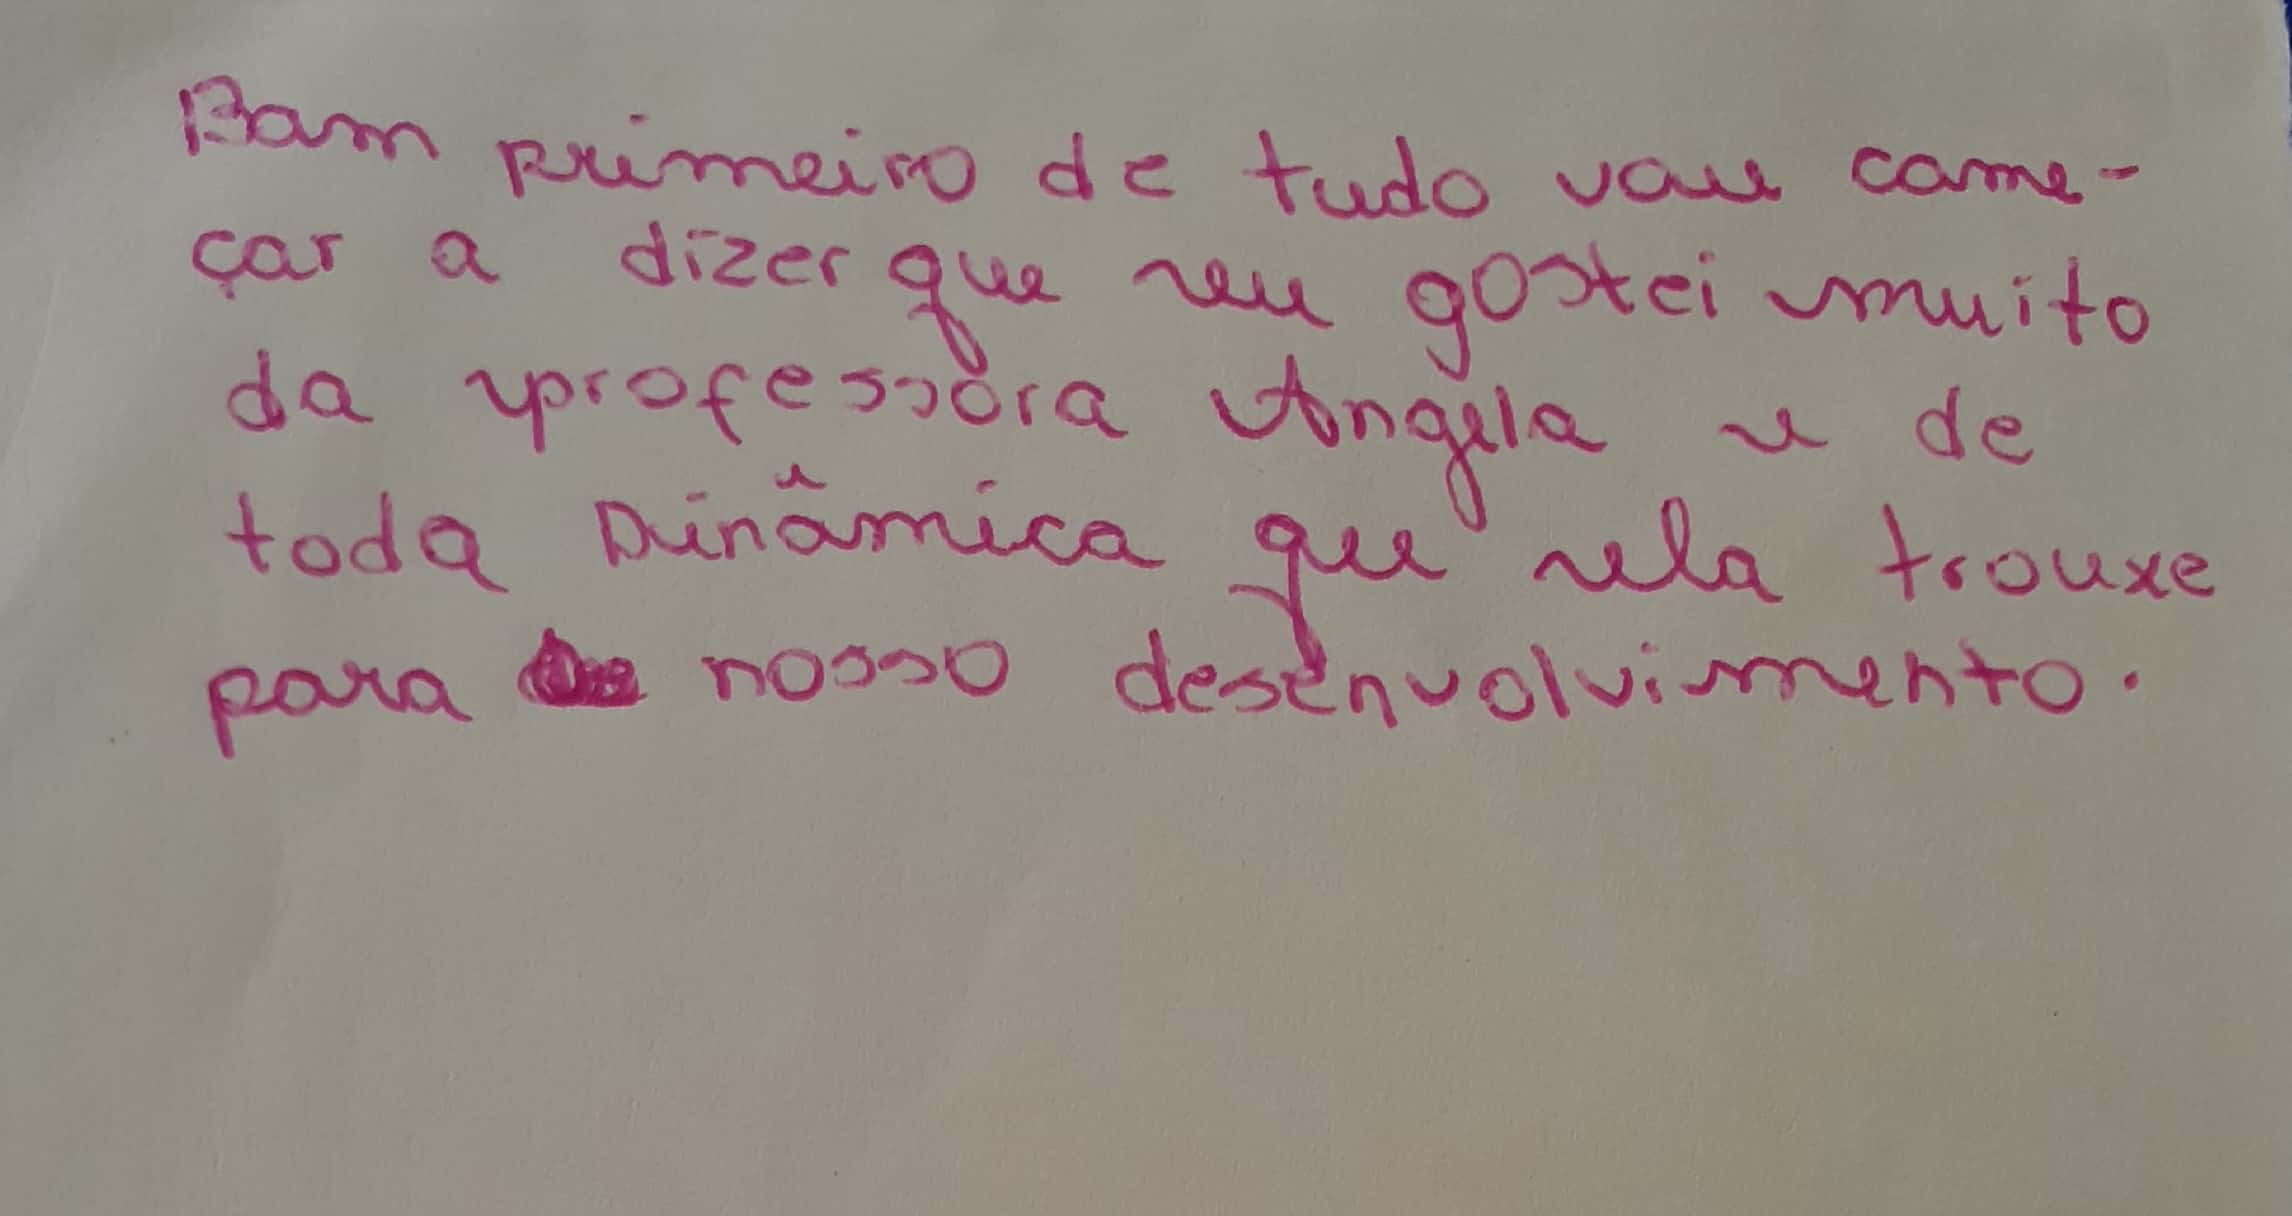 Bom primeiro de tudo vou come-
çar a dizer que eu gostei muito
da professora Angela e de
toda Dinâmica que ela trouxe
para nosso desenvolvimento.